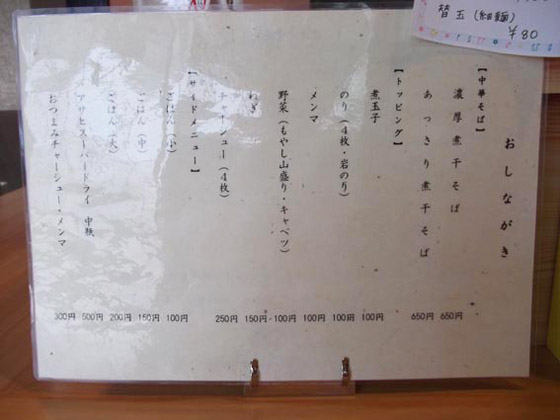 おしながき
【中華そば】
濃厚煮干そば 650円
あっさり煮干そば 650円
【トッピング】
煮玉子 100円
のり(4枚・岩のり) 100円
メンマ 100円
野菜(もやし山盛り・キャベツ) 100円
ねぎ 150円
チャーシュー(4枚) 250円
【サイドメニュー】
ごはん(小) 100円
ごはん(中) 150円
ごはん(大) 200円
アサヒスーパードライ 中瓶 500円
おつまみチャーシュー・メンマ 300円
替玉(細麺)
¥80